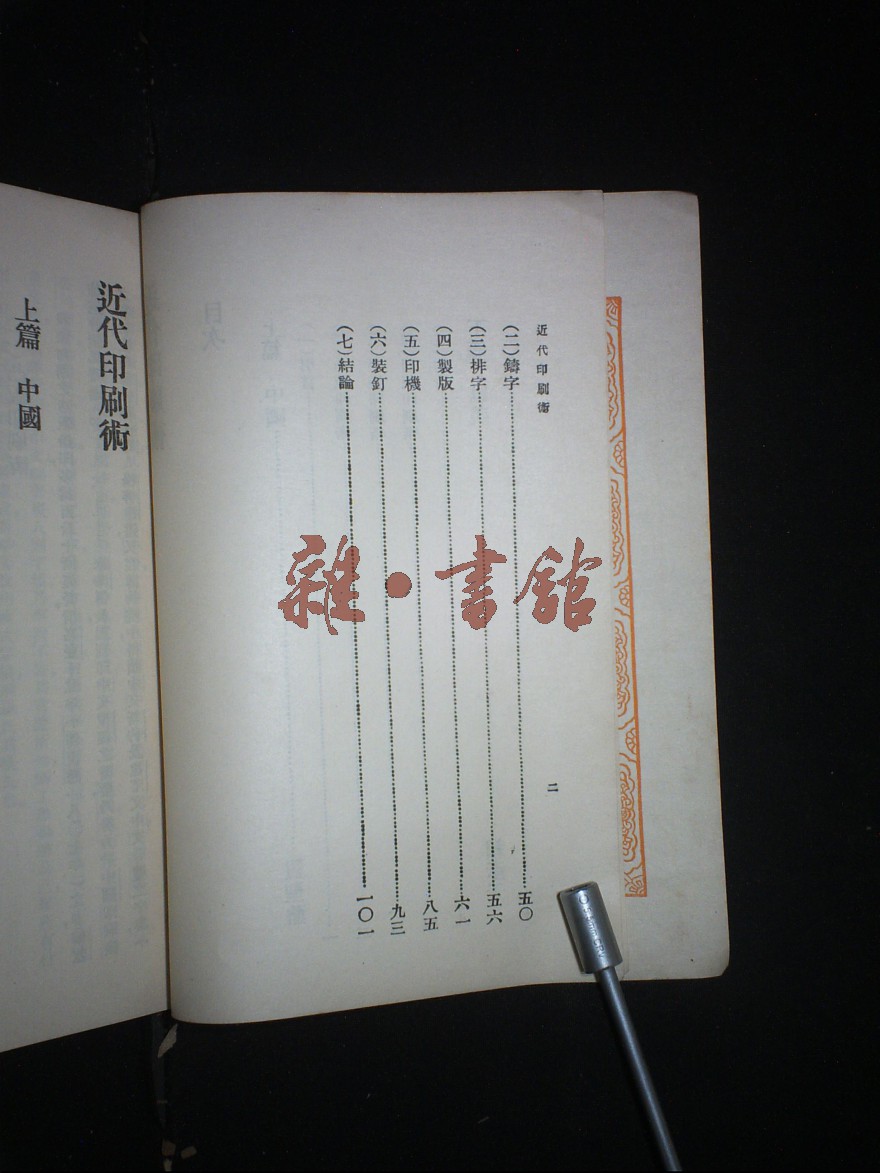 近代印刷術
二
（二）鑄字……五〇
（三）排字……五六
（四）製版……六一
（五）印機……八五
（六）裝釘……九三
（七）結論……一〇一
近代印刷術
上篇 中國
雜·書館